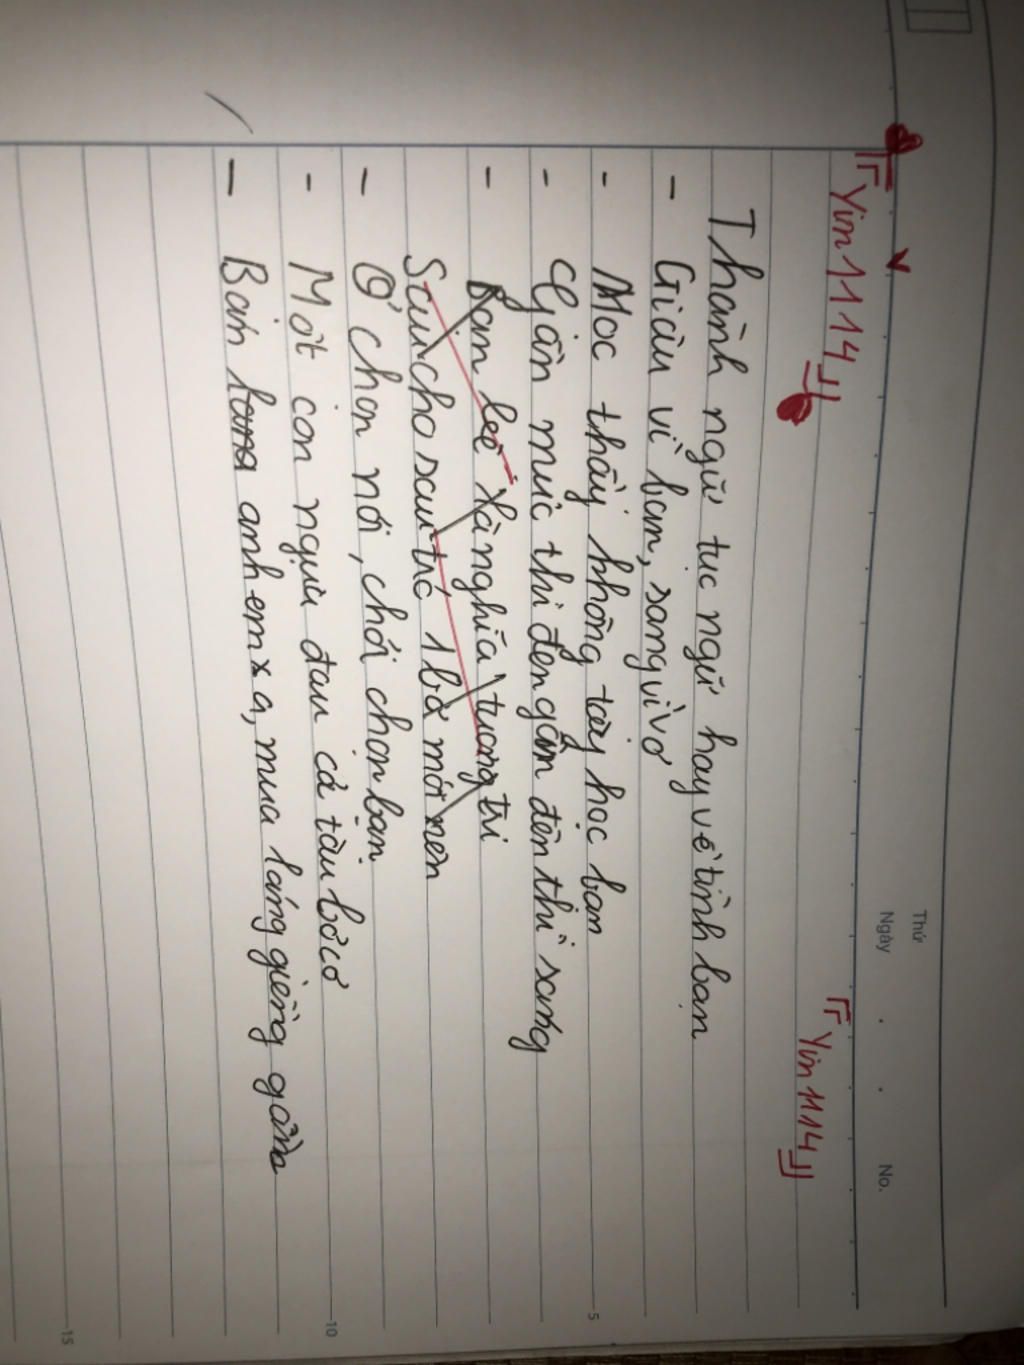 Thứ
Ngày . . No.
『Yin1114』 『Yin1114』
Thành ngữ tục ngữ hay về tình bạn
- Giàu vì bạn, sang vì vợ
- Học thầy không tày học bạn
- Gần mực thì đen gần đèn thì sáng
- Bần
nghĩa tương tri
Sau cho sau trả 1 bở mới nên
- Ở chọn nơi, chơi chọn bạn
- Một con ngựa đau cả tàu bỏ cỏ
- Bán anh em xa, mua láng giềng gần
5
10
15